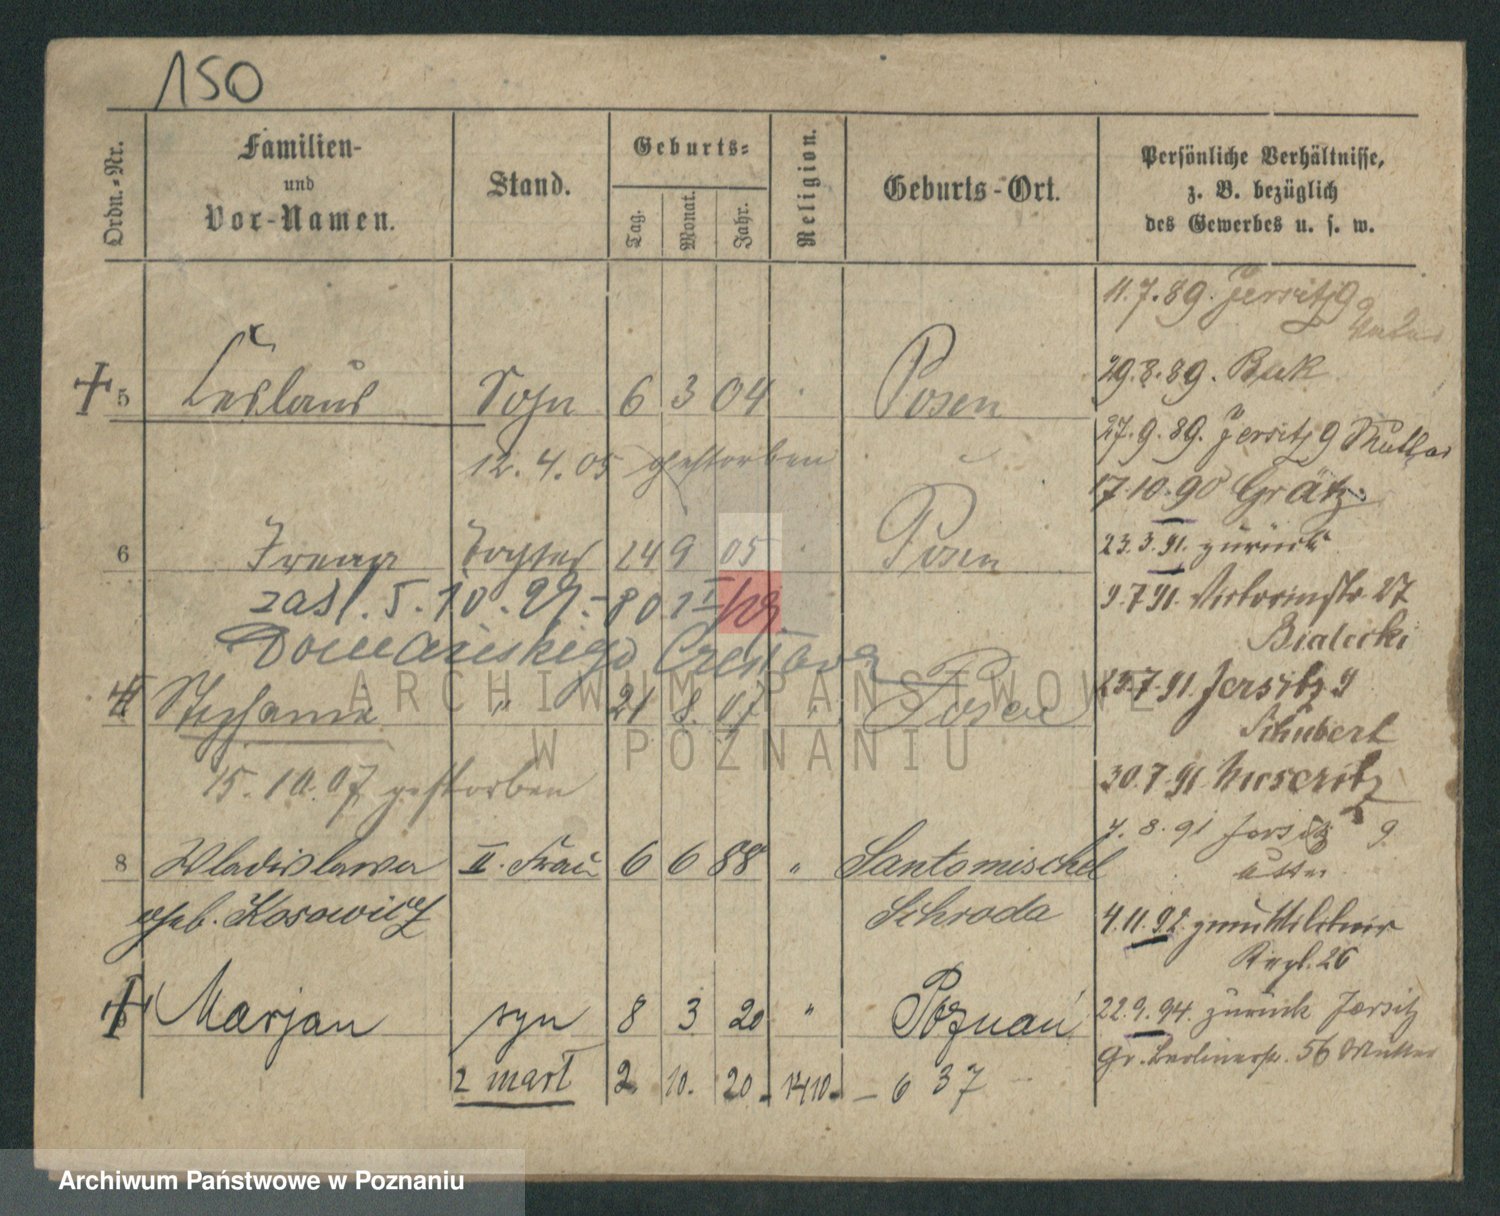 150
Ordn.-Nr.
Familien-
und
Vor-Namen.
Stand.
Geburts-
Tag.
Monat.
Jahr.
Religion.
Geburts-Ort.
Persönliche Verhältnisse,
z. B. bezüglich
des Gewerbes u. s. w.
5 Ceslaus Sohn 6 3 04 Posen
12.4.05 gestorben
6 Irena Tochter 24 9 05 Posen
zasl. 5.10.29.
Domańskiego Czesława
Stephanie " 21 8. 07 " Posen
15.10.07 gestorben
8 Wladislawa II. Frau 6 6 88 " Santomischel
geb. Kosowicz Schroda
Marjan syn 8 3 20 " Poznań
2 mart 2 10. 20
11.7.89. Jersitz 9
29.8.89. Buk
27.9.89. Jersitz 9 Mutter
17.10.90 Grätz
23.3.91. zurück
9.7.91. Victoriastr 27
Bialecki
25.7.91. Jersitz 9
Schubert
30.7.91 Meseritz
7.8.91 Jersitz 9
4.11.92. zum Militair
Regt. 26
22.9.94. zurück Jersitz
Gr. Berlinerstr. 56 Mutter
ARCHIWUM PAŃSTWOWE
W POZNANIU
Archiwum Państwowe w Poznaniu